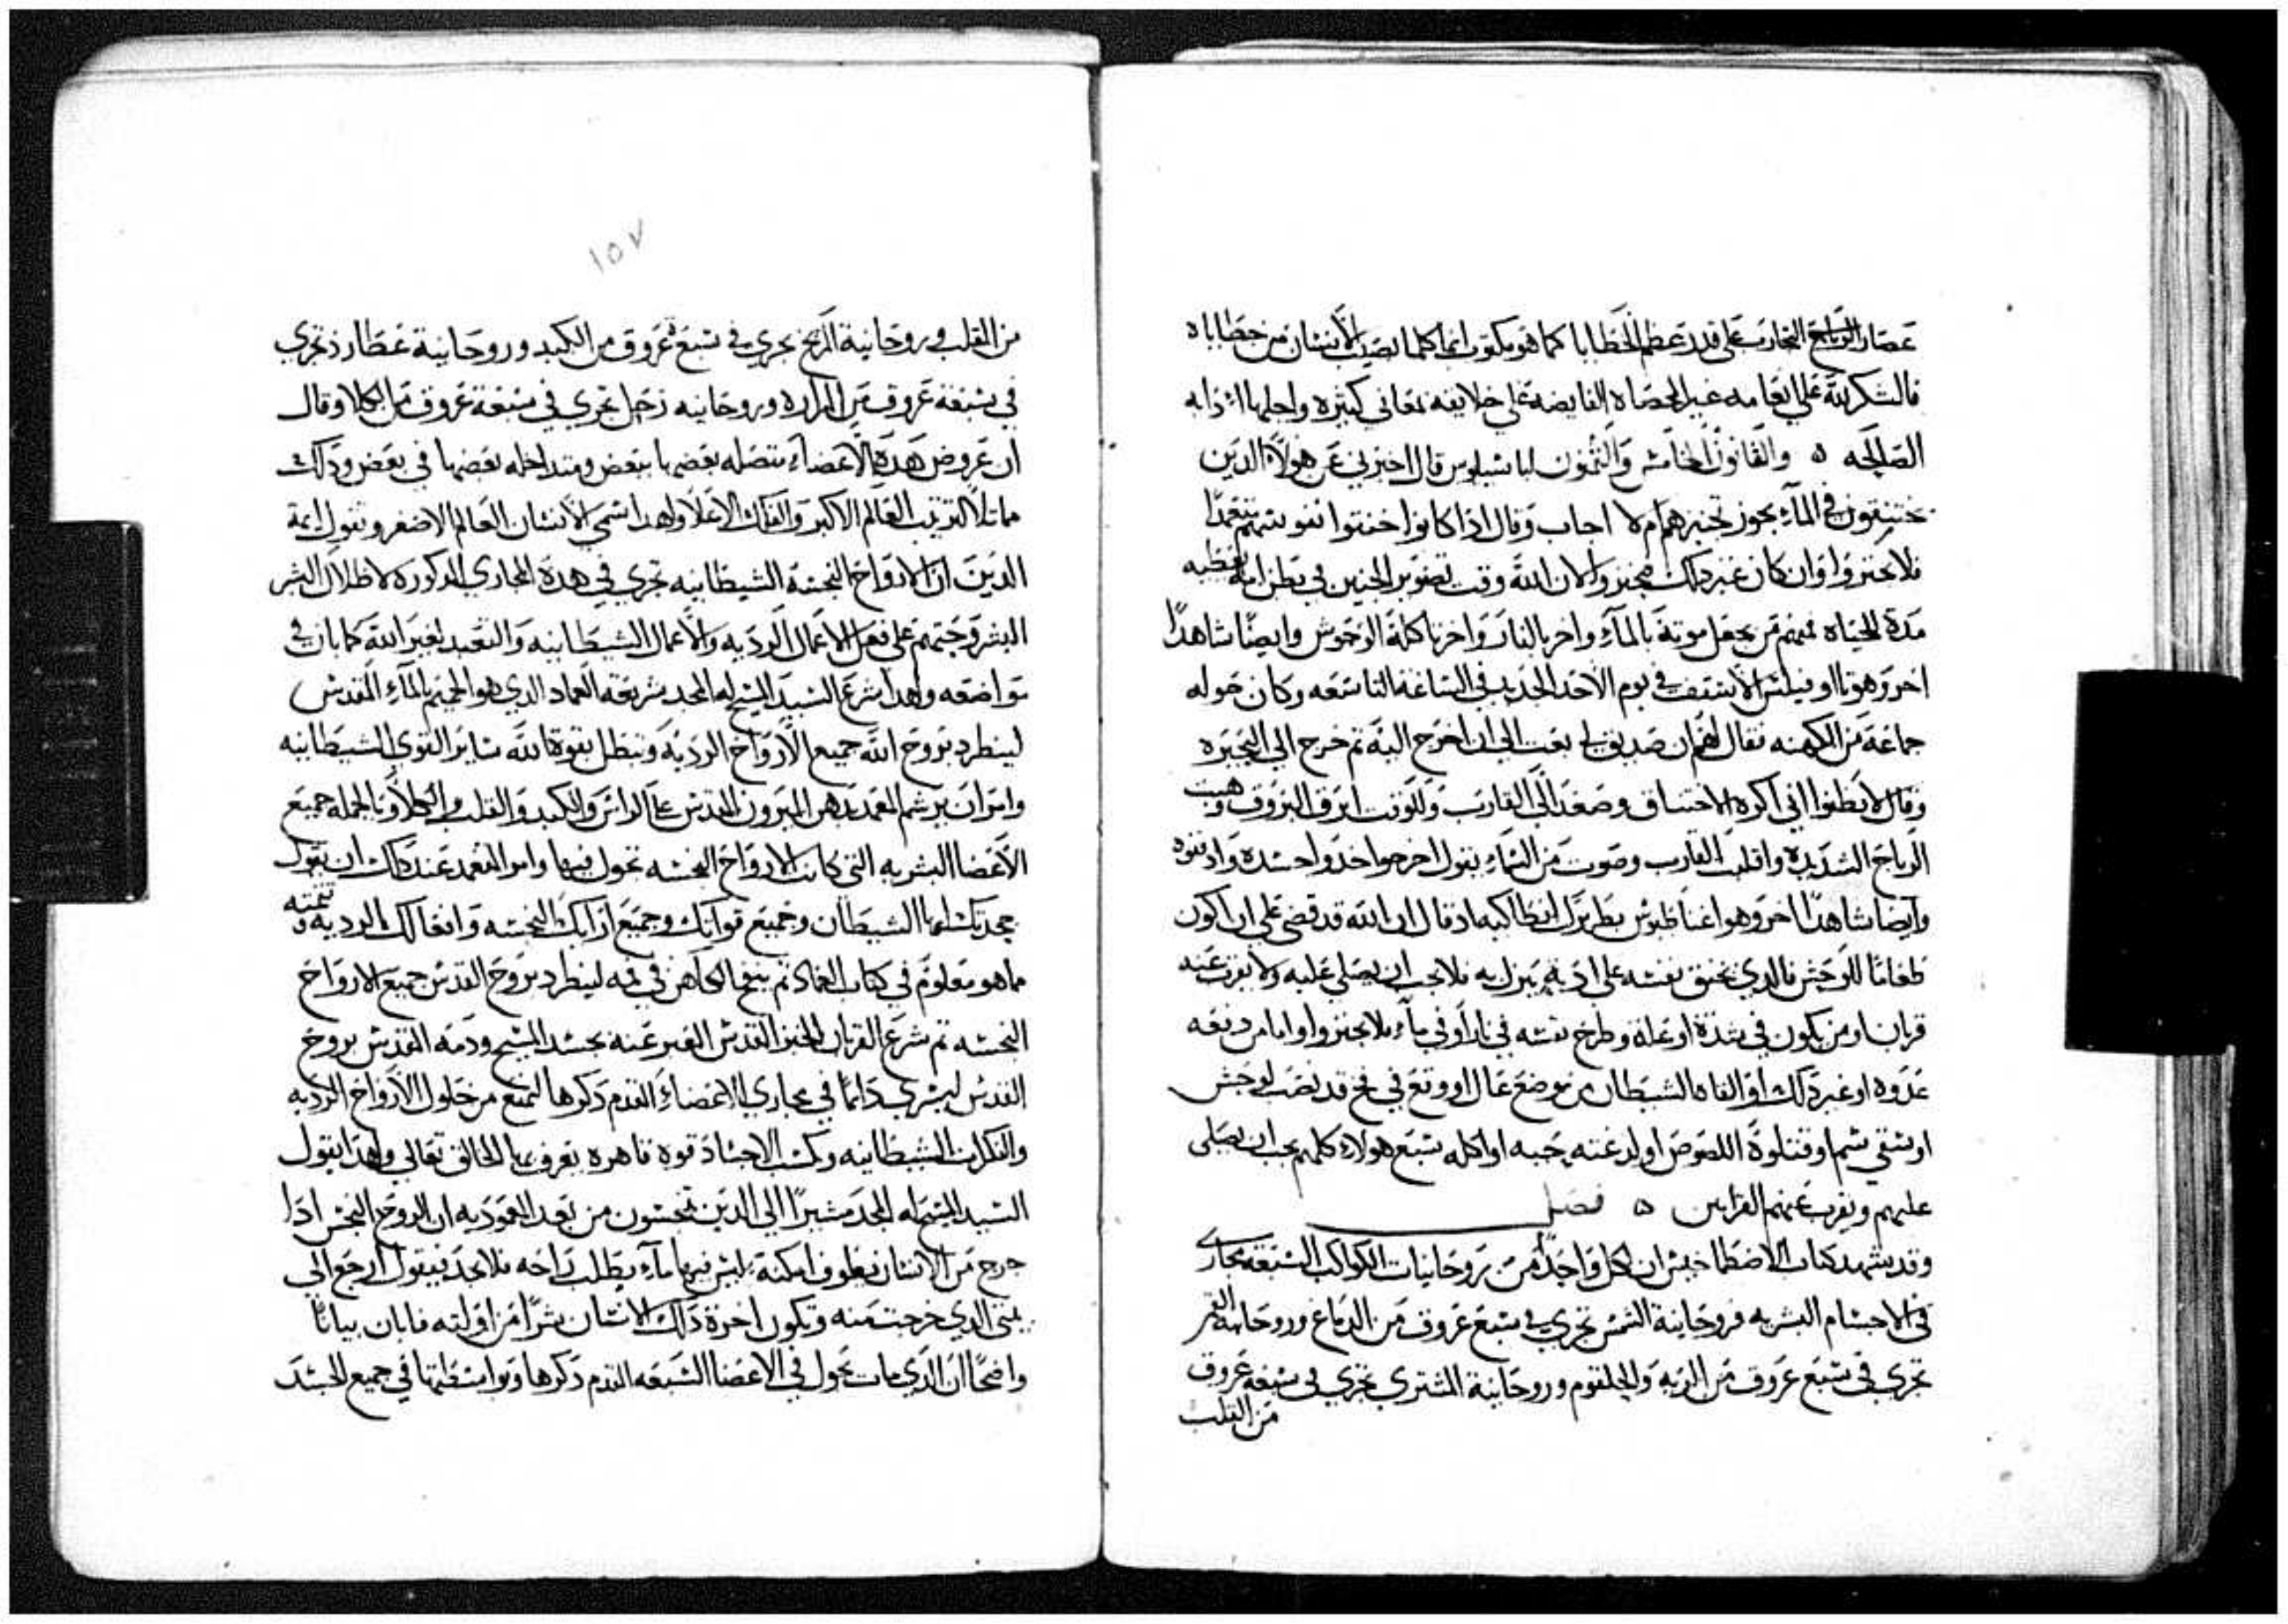 على قدر عظم الخطايا كما هو مكتوب انما كلما يصيب الانسان من خطاياه
فالشكر لله على انعامه غير المحصاه الفايضه على خلايقه بمعاني كثيره واجلها
الصالحه ٥ والقانون الخامس والثمون لباسيلوس قال اخبرني عن هولاء الدين
يختنقون في الماء يجوز تجنيزهم ام لا اجاب وقال ادا كانوا خنقوا نفوسهم تعمدا
فلا يجنزوا وان كان غير دلك فيجنزوا لان الله وقت تصوير الجنين في بطن امه يعطيه
مدة الحياه فمنهم من يجعل موته بالماء واخر بالنار واخر باكلة الوحوش وايضا شاهدا
اخر وهو الاسقف في يوم الاحد الجديد في الساعة التاسعه وكان حوله
جماعة من الكهنه فقال لهم ان صديق لي بعت الي ان اخرج اليه تم خرج الى البحيره
وقال لا تظنوا اني اكره الاختناق وصعد الى القارب وللوقت ابرق البروق وهبت
الرياح الشديده وانقلب القارب وصوت من السماء يقول اخرجوا خدوا جسده وادفنوه
وايضا شاهدا اخر وهو اغناطيوس بطريرك انطاكيه اد قال ان الله قد قضى على ان اكون
طعاما للوحش فالدي يخنق نفسه على ادية ينزل به فلا يجب ان يصلى عليه ولا يقرب عنه
قربان ومن يكون في شدة او علة وطرح نفسه في نار او في ماء فلا يجنزوا واما من دفعه
عدوه او غير دلك او القاه الشيطان من موضع عال او وقع في فخ قد نصب لوحش
او سقي سم او قتلوه اللصوص او لدغته حيه او اكله سبع هولاء كلهم يجب ان يصلى
عليهم ويقرب عنهم القرابين ٥ فصل
وقد يشهد كتاب ان لكل واحد من روحانيات الكواكب السبعه مجاري
في الاجسام البشريه فروحانية الشمس تجري في سبع عروق من الدماغ وروحانية القمر
تجري في سبع عروق من الريه والحلقوم وروحانية المشتري تجري في سبعة عروق
من القلب
١٥٧
من القلب وروحانية المريخ تجري في سبع عروق من الكبد وروحانية عطارد تجري
في سبعة عروق من المراره وروحانيه زحل تجري في سبعة عروق من الكلا وقال
ان عروض هده الاعضاء متصله بعضها ببعض ومتداخله بعضها في بعض ودلك
مماتلا لترتيب العالم الاكبر والفلك الاعلا ولهدا سمي الانسان العالم الاصغر وتقول ايمة
الدين ان الارواح النجسة الشيطانيه تجري في هده المجاري المدكوره لاظلال البشر
البشر وحتهم على فعل الاعمال الرديه والاعمال الشيطانيه والتعبد لغير الله كما بان في
مواضعه ولهدا شرع السيد المسيح له المجد شريعة العماد الدي هو الحميم بالماء المقدس
لينطرد بروح الله جميع الارواح الرديه وتبطل بقوة الله ساير القوى الشيطانيه
وامر ان يرشم المعمد بدهن الميرون المقدس على الراس والكبد والقلب والكلا وبالجمله جميع
الاعضا البشريه التي كانت الارواح النجسه تجول فيها وامر المتعمد عند دلك ان يقول
جحدتك ايها الشيطان وجميع قواتك وجميع النجسه وافعالك الرديه وتتمته
ما هو معلوم في كتاب العماد تم ينفخ الكاهن في فمه لينطرد بروح القدس جميع الارواح
النجسه تم شرع القربان الخبز المقدس المعبر عنه بجسد المسيح ودمه المقدس بروح
القدس ليسري دائما في مجاري الاعضاء المقدم دكرها لتمنع من حلول الارواح الرديه
والفكرات الشيطانيه وتكسب الاجساد قوة قاهره يعرف بها الخالق تعالى ولهدا يقول
السيد المسيح له المجد مشيرا الى الدين ينجسون من بعد المعموديه ان الروح النجس ادا
خرج من الانسان يطوف امكنة ليس فيها ماء يطلب راحه فلا يجد فيقول ارجع الى
بيتي الدي خرجت منه وتكون اخرة دلك الانسان شرا من اولته فابان بيانا
واضحا ان تجول في الاعضا السبعه المقدم دكرها وبواسطتها في جميع الجسد